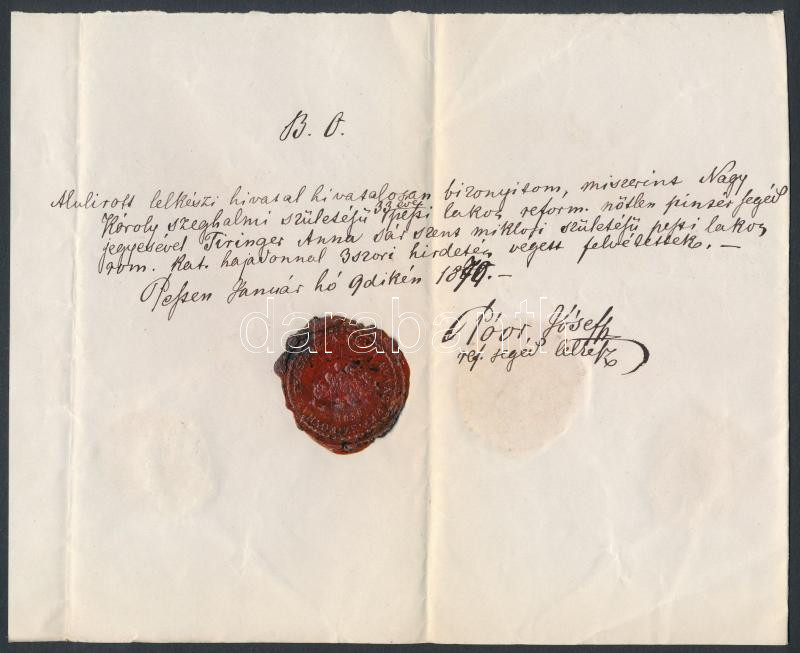 B. O.
Alulirott lelkészi hivatal hivatalosan bizonyitom, miszerint Nagy
33 éves
Károly szeghalmi születésü pesti lakos, reform. nőtlen pinzér segéd
jegyesével Tiringer Anna sár szent miklosi születésü pesti lakos,
rom. kat. hajadonnal 3szori hirdetés végett felvétettek. —
Pesten Január hó 9dikén 1870. —
Póor Jósef
ref. segéd lelkész
darabanth
1859